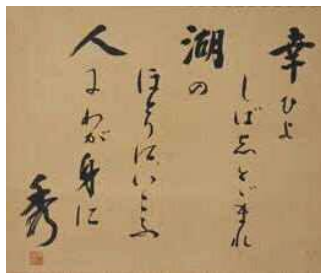 幸ひよ
しばしとどまれ
湖の
ほとりにいこふ
人よわが身に
秀